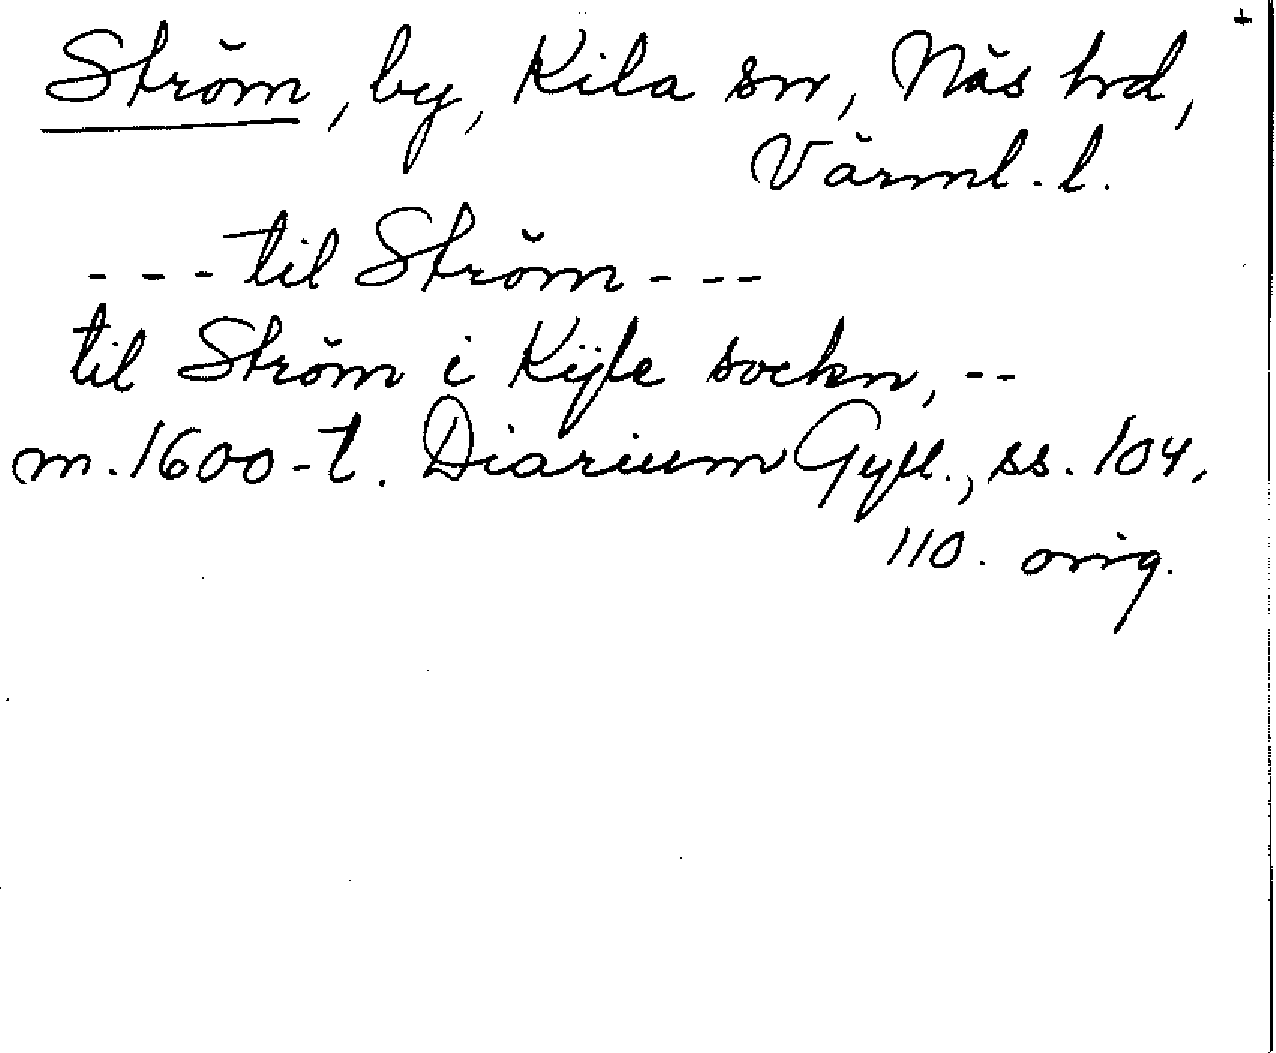 +
Ström, by, Kila sn, Näs hrd,
Värml. l.
--- til Ström ---
til Ström i Kijle sockn, --
m. 1600-t. Diarium Gyll., ss. 104,
110. orig.